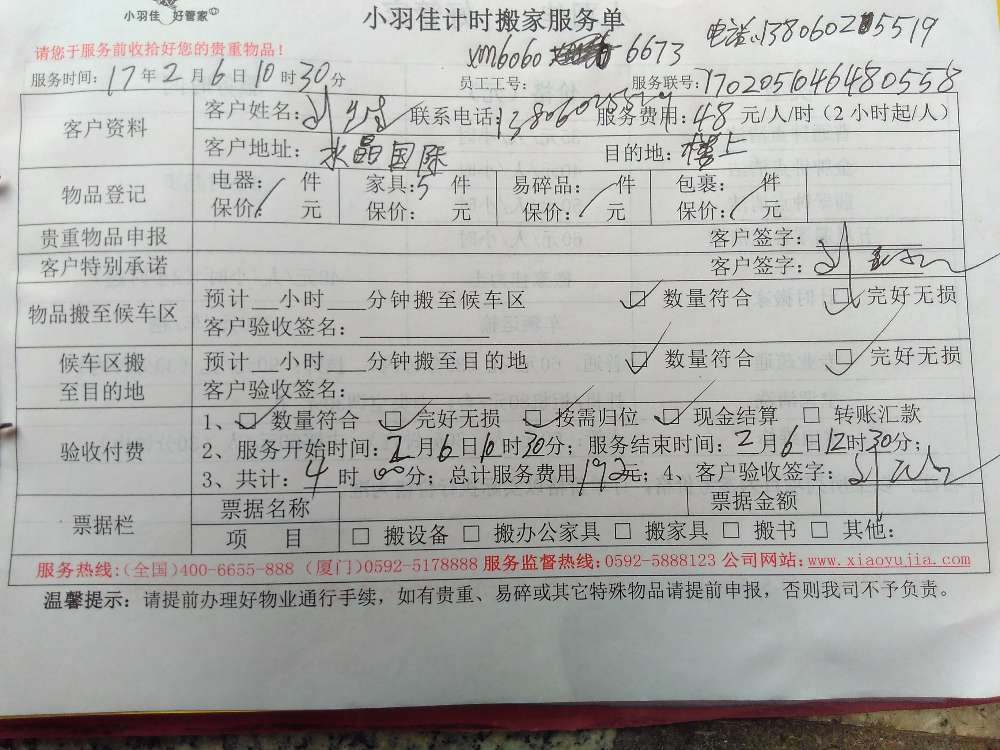 小羽佳 好管家
小羽佳计时搬家服务单
电话:13806025519
请您于服务前收拾好您的贵重物品！
xm6060 6673
服务时间：17年2月6日10时30分 员工工号： 服务联号：1702051046480558
客户资料 客户姓名： 联系电话：13806025519 服务费用：48元/人/时（2小时起/人）
客户地址：水晶国际 目的地：楼上
物品登记 电器： 件 家具：5件 易碎品： 件 包裹： 件
保价： 元 保价： 元 保价： 元 保价： 元
贵重物品申报 客户签字：
客户特别承诺 客户签字：
物品搬至候车区 预计___小时___分钟搬至候车区 ☑ 数量符合 ☑ 完好无损
客户验收签名：
候车区搬至目的地 预计___小时___分钟搬至目的地 ☑ 数量符合 ☑ 完好无损
客户验收签名：
验收付费 1、☑ 数量符合 ☑ 完好无损 ☑ 按需归位 ☑ 现金结算 □ 转账汇款
2、服务开始时间：2月6日10时30分；服务结束时间：2月6日12时30分；
3、共计：4时00分；总计服务费用192元；4、客户验收签字：
票据栏 票据名称 票据金额
项 目 □ 搬设备 □ 搬办公家具 □ 搬家具 □ 搬书 □ 其他：
服务热线：(全国)400-6655-888（厦门)0592-5178888 服务监督热线：0592-5888123 公司网站：www.xiaoyujia.com
温馨提示：请提前办理好物业通行手续，如有贵重、易碎或其它特殊物品请提前申报，否则我司不予负责。